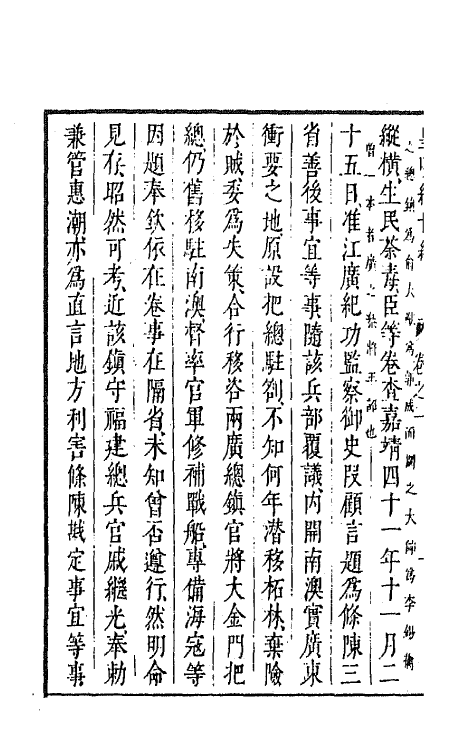 縱橫生民荼毒臣等卷查嘉靖四十一年十一月二
十五日准江廣紀功監察御史段顧言題爲條陳三
省善後事宜等事隨該兵部覆議內開南澳實廣東
衝要之地原設把總駐劄不知何年潛移柘林棄險
於賊委爲失策合行移咨兩廣總鎮官將大金門把
總仍舊移駐南澳督率官軍修補戰船專備海寇等
因題奉欽依在卷事在隔省未知曾否遵行然明命
見存昭然可考近該鎮守福建總兵官戚繼光奉勅
兼管惠潮亦爲直言地方利害條陳戡定事宜等事